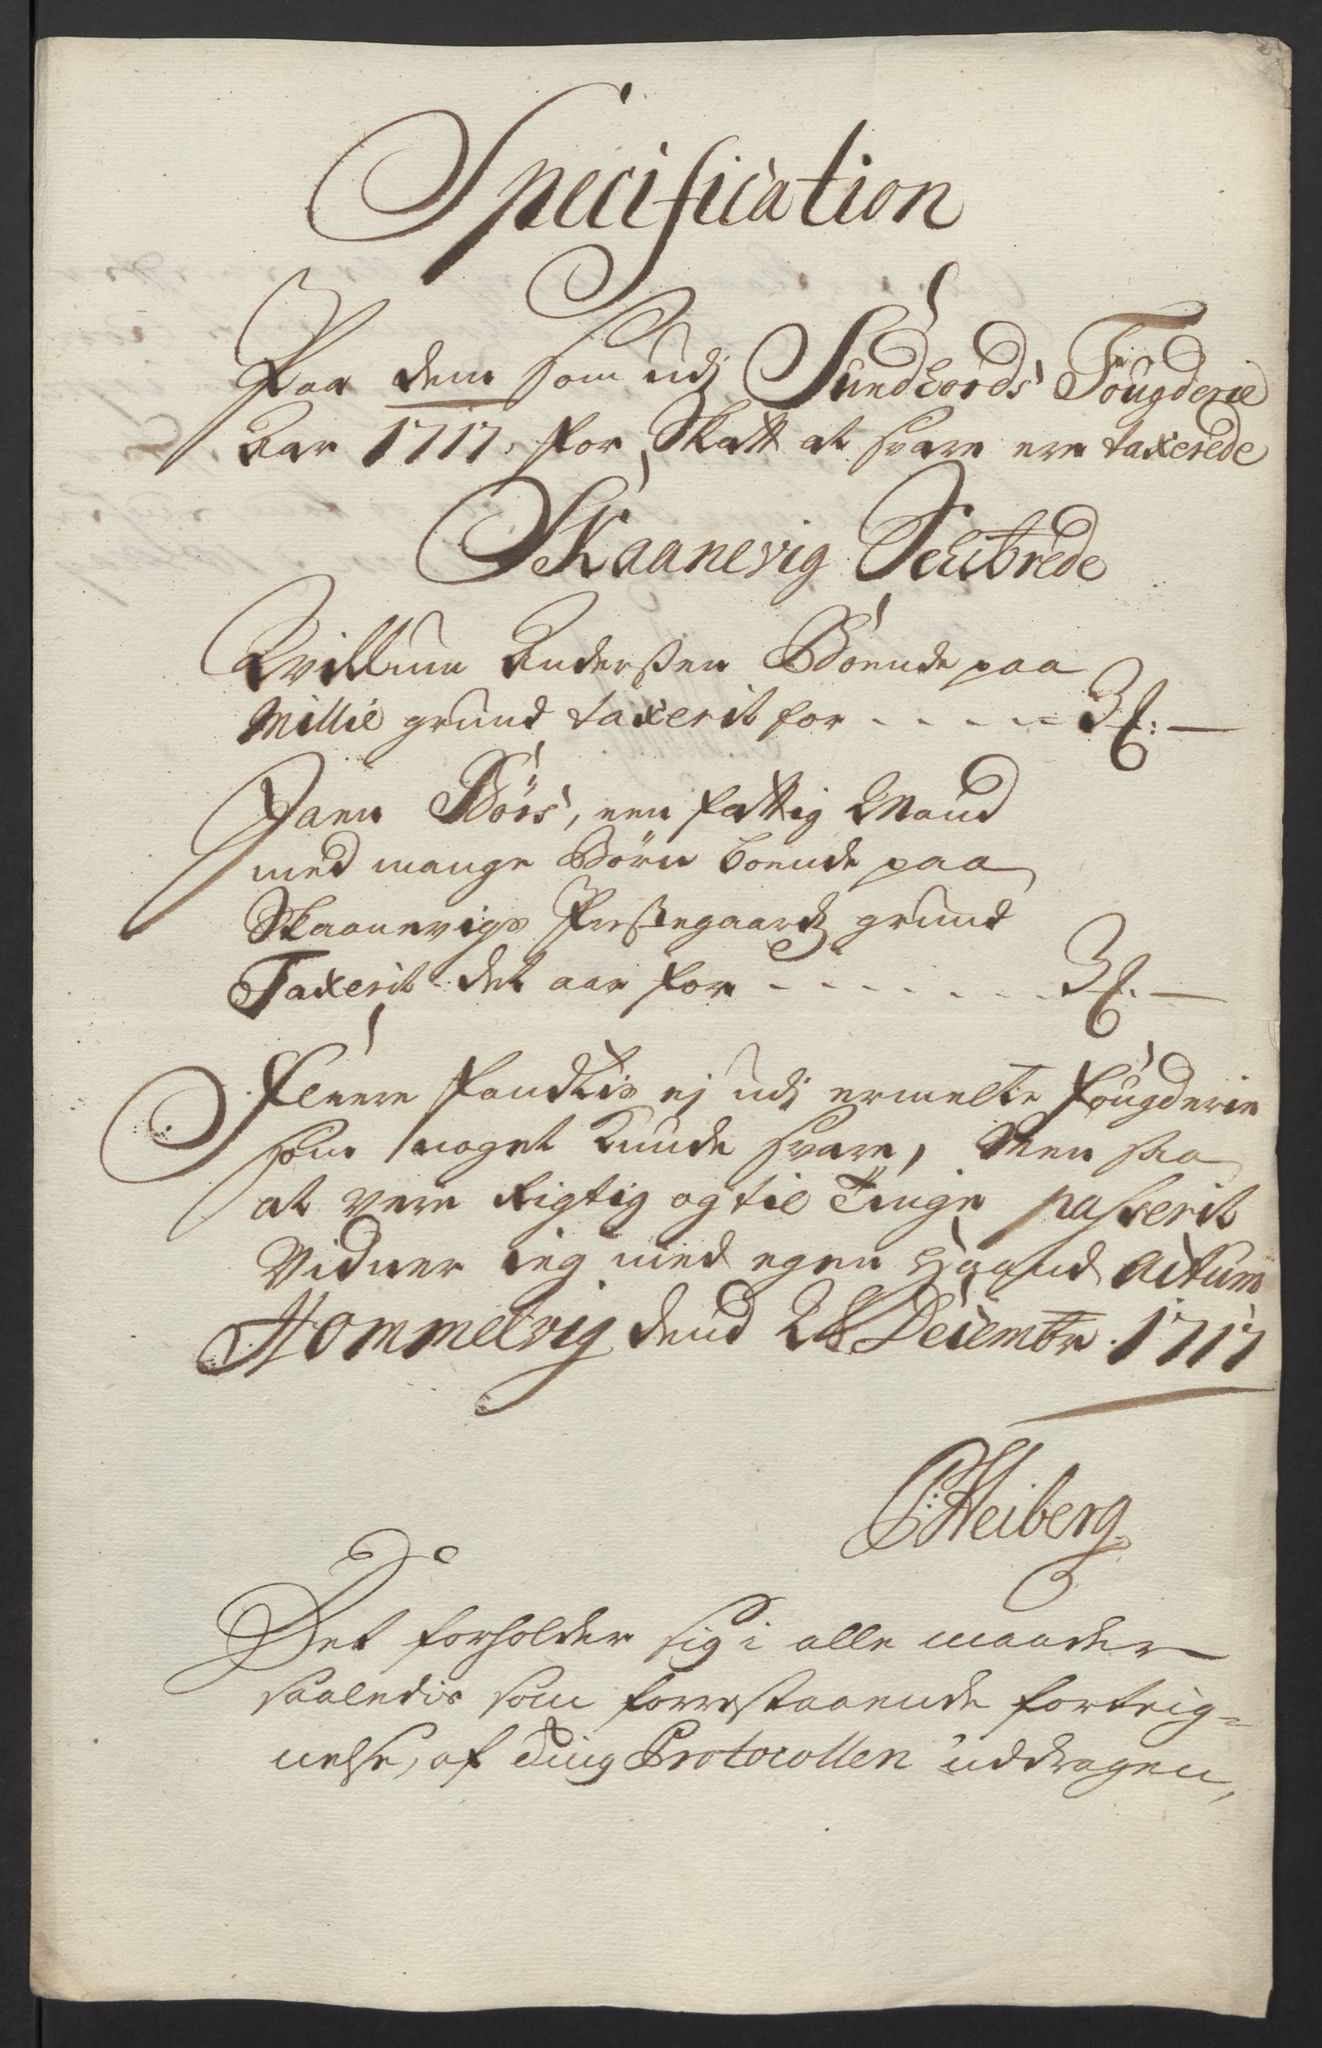 Specification
Paa dem som udj Sundhords Fougderie
Aar 1717. for Skatt at svare ere taxerede
Skaanevig Schibrede
Villum Anderssen Boende paa
Millie grund taxerit for - - - - - 3 -
Joen Börs, een fattig Mand
med mange Börn boende paa
Skaanevigs Prestegaards grund
Taxerit det aar for - - - - - - - 3 -
Fleere fandtis ej udj ermelte fougderie
som noget kunde svare, Men saa
at vere Rigtig og til Tinge passerit
Vidner ieg med egen Haand Actum
Hommelvig dend 28 Decembr. 1717
Heiberg
Det forholder sig i alle maader
saaledis som forrestaaende forteig-
nelse, af Ting Protocollen uddragen,